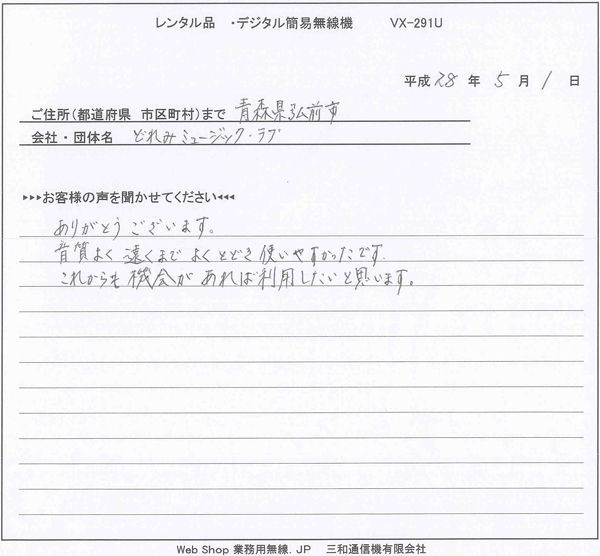 レンタル品 ・デジタル簡易無線機 VX-291U
平成 28 年 5 月 1 日
ご住所(都道府県 市区町村)まで 青森県弘前市
会社・団体名 どれみミュージック・ラブ
▸▸▸お客様の声を聞かせてください◂◂◂
ありがとうございます。
音質よく 遠くまで よくとどき 使いやすかったです.
これからも 機会が あれば利用したいと思います。
Web Shop 業務用無線.JP 三和通信機有限会社